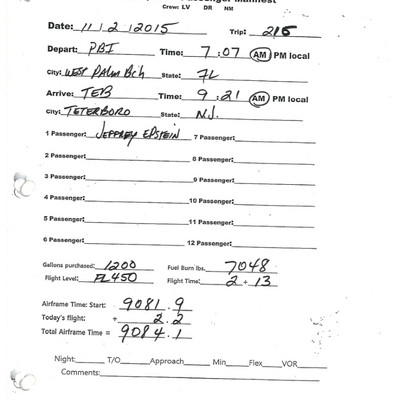 Passenger Manifest
Crew: LV DR NM
Date: 11|2|2015 Trip: 216
Depart: PBI Time: 7:07 AM PM local
City: West Palm Bch State: FL
Arrive: TEB Time: 9:21 AM PM local
City: TETERBORO State: N.J.
1 Passenger: JEFFREY EPSTEIN 7 Passenger:
2 Passenger: 8 Passenger:
3 Passenger: 9 Passenger:
4 Passenger: 10 Passenger:
5 Passenger: 11 Passenger:
6 Passenger: 12 Passenger:
Gallons purchased: 1200 Fuel Burn lbs. 7048
Flight Level: FL450 Flight Time: 2 + 13
Airframe Time: Start: 9081.9
Today's flight: + 2.2
Total Airframe Time = 9084.1
Night: T/O Approach Min Flex VOR
Comments: